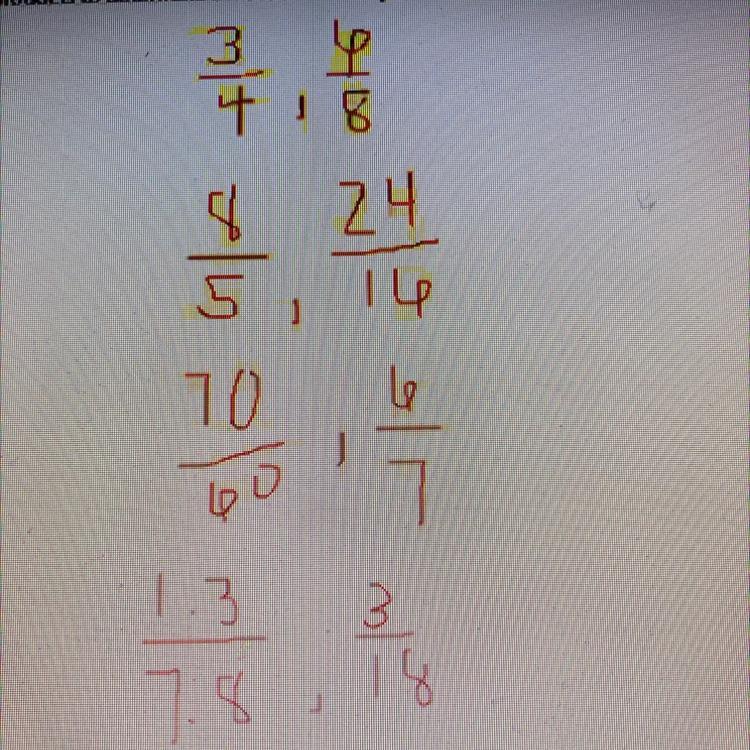 3/4 , 6/8
8/5 , 24/16
70/60 , 6/7
1.3/7.8 , 3/18